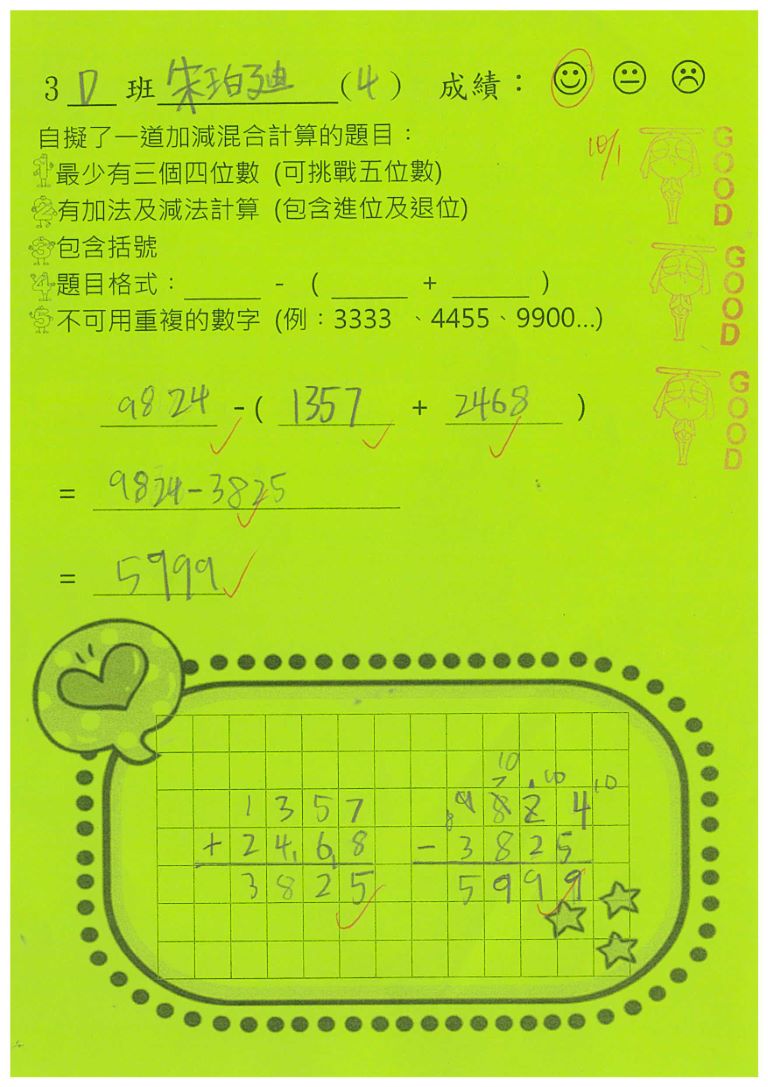 3 D 班 宋珀廸 (4) 成績：
10/1
自擬了一道加減混合計算的題目：
1 最少有三個四位數 (可挑戰五位數)
2 有加法及減法計算 (包含進位及退位)
3 包含括號
4 題目格式：______ - ( ______ + ______ )
5 不可用重複的數字 (例：3333 、4455、9900...)
GOOD
GOOD
GOOD
9824 - ( 1357 + 2468 )
= 9824-3825
= 5999
1357
+ 2468
3825
8 10 7 10 1 10
9824
- 3825
5999